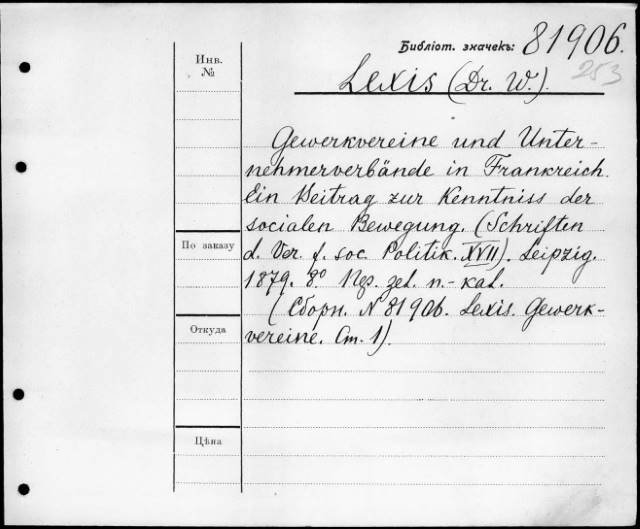 Библіот. значекъ: 81906.
253
Инв.
№
Lexis (Dr. W.).
Gewerkvereine und Unter-
nehmerverbände in Frankreich.
Ein Beitrag zur Kenntniss der
socialen Bewegung. (Schriften
По заказу
d. Ver. f. soc. Politik. XVII). Leipzig.
1879. 8º
(Сборн. N 81906. Lexis. Gewerk-
Откуда
vereine. Ст. 1).
Цѣна